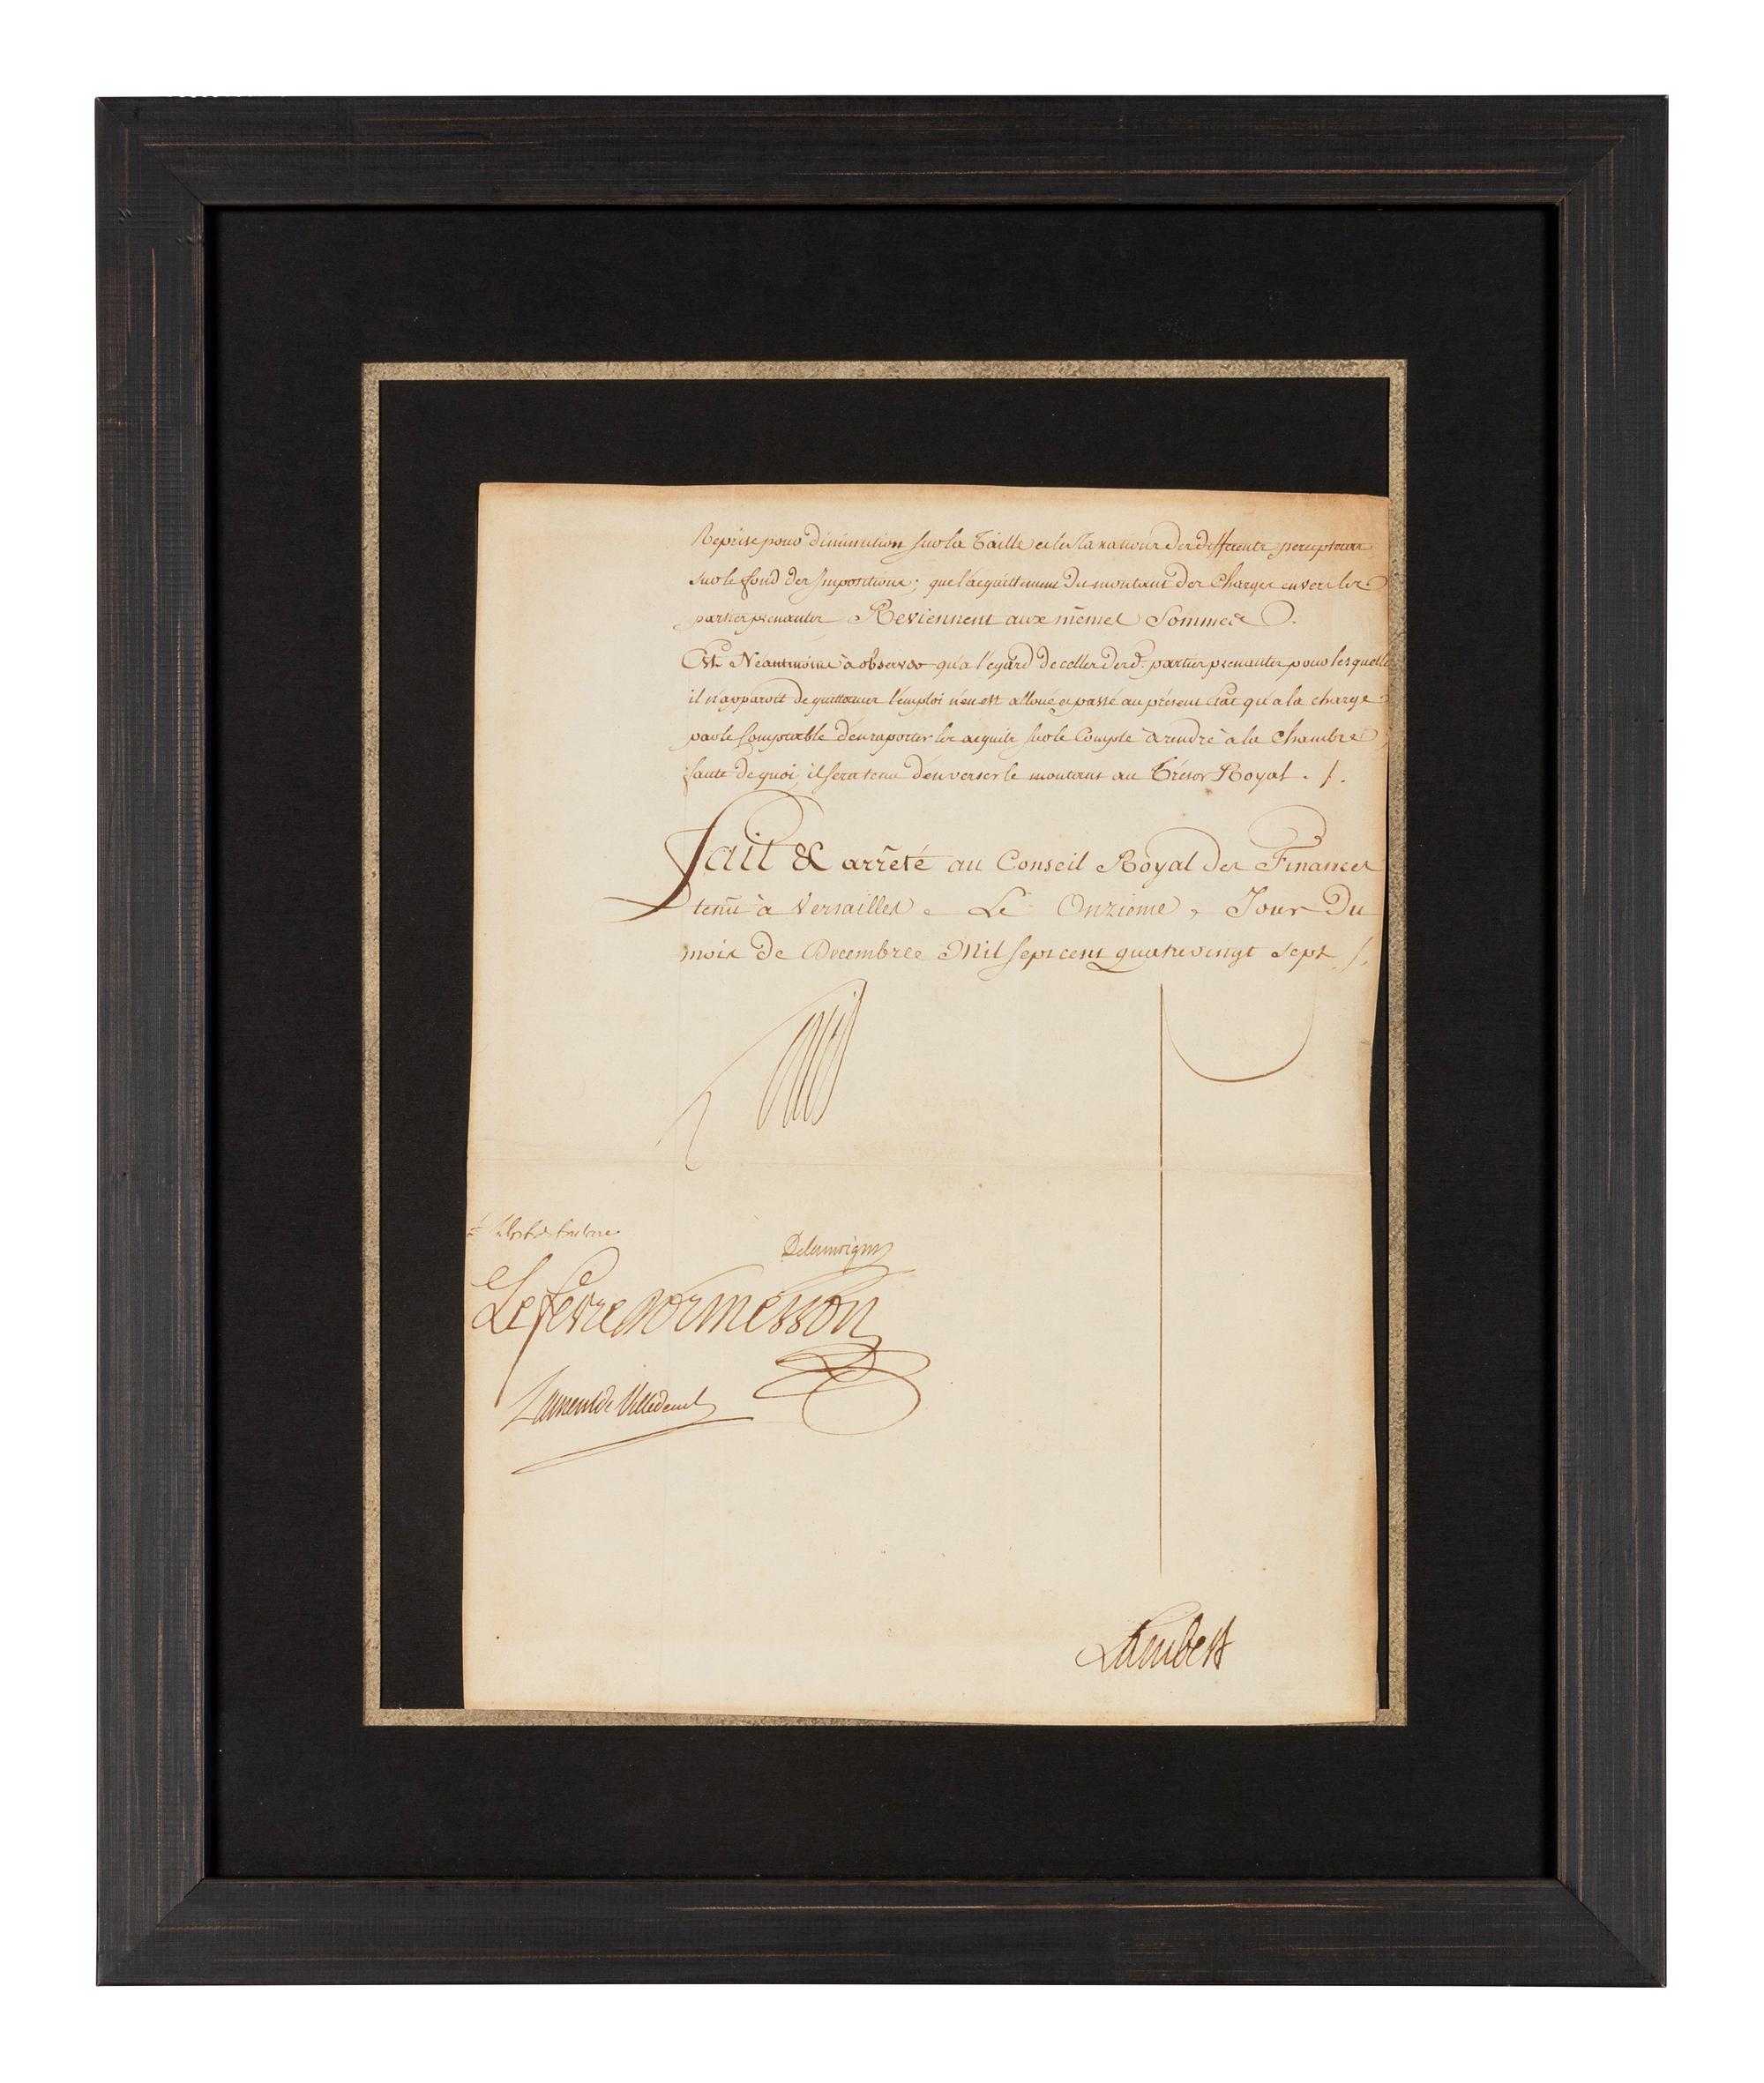 Reprise pour Diminution sur la Taille et les Taxations des differents percepteurs
sur le fond des Impositions; que l'acquittement Du montant des Charges envers les
parties prenantes Reviennent aux mêmes Sommes.
Est Neantmoins à observer qu'a l'egard de celles desd. parties prenantes pour lesquelles
il n'apparoit de quittances l'emploi n'en est alloué et passé au présent Etat qu'a la charge
par le Comptable d'en raporter les acquits sur le Compte à rendre à la Chambre
faute de quoi, il sera tenu d'en verser le montant au Trésor Royal ./.
Fait & arrêté au Conseil Royal des Finances
tenû à Versailles. Le Onzieme, Jour Du
mois De Decembre Mil sept cent quatrevingt sept ./.
Delamoignon
Lefevre Dormesson
Laurent de Villedeuil
Lambert